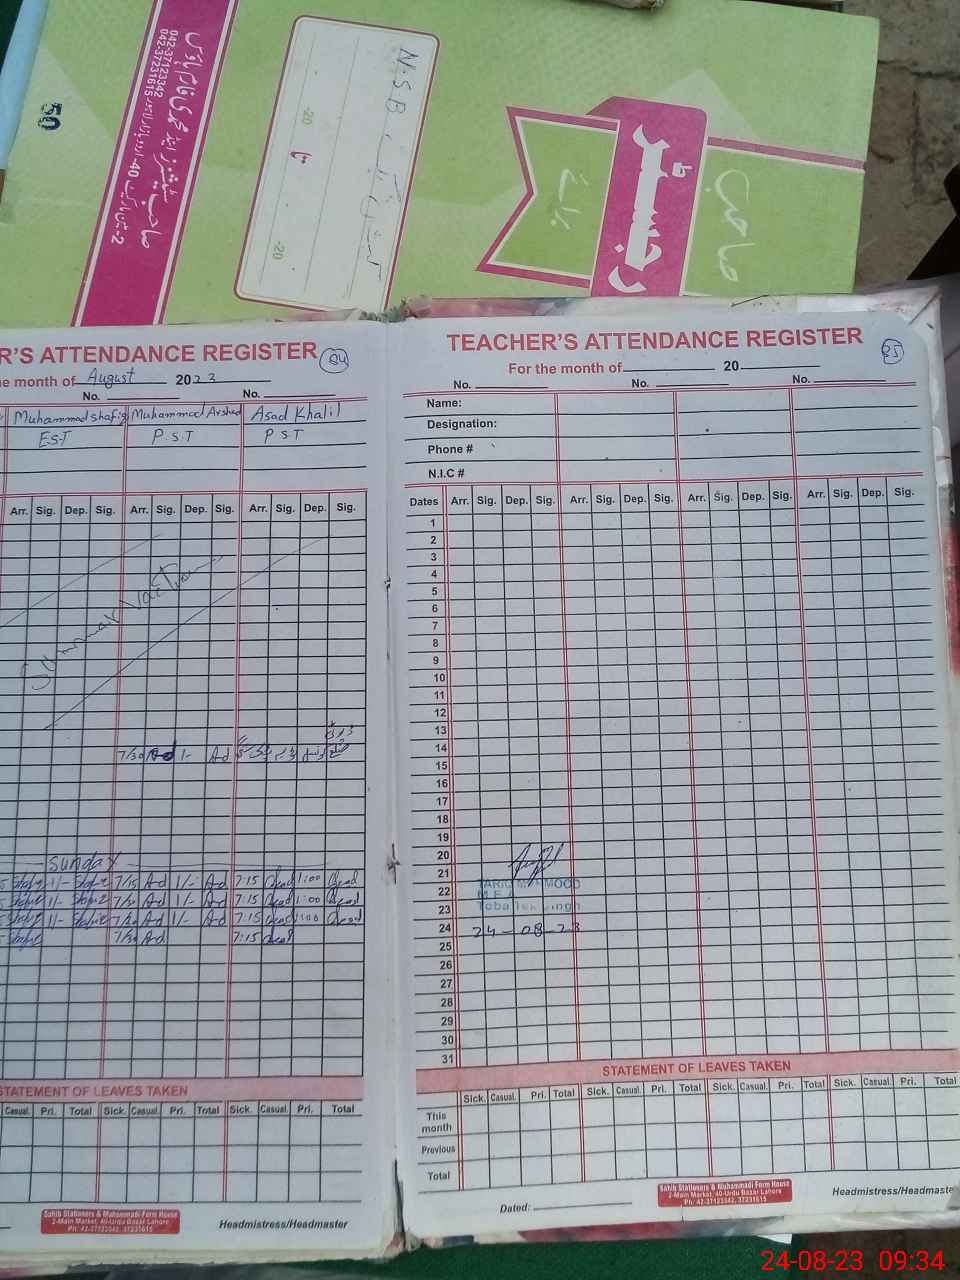 صاحب شنشرز اینڈ محمدی فارم ہاؤس
2-مین مارکیٹ 40-اردو بازار لاہور
042-37123342
042-37231615
50
N.S.B
20-
تا
20-
صاحب
رجسٹر
برائے
R'S ATTENDANCE REGISTER
84
he month of August 2023
No. No.
Muhammad Shafiq Muhammad Arshad Asad Khalil
E.S.T P.S.T P.S.T
Arr. Sig. Dep. Sig. Arr. Sig. Dep. Sig. Arr. Sig. Dep. Sig.
Summar Vaction
7/30 Ad 1/- Ad
Sunday
Shafiq 1/- Shafiq 7/15 Ad 1/- Ad 7:15 Asad 1:00 Asad
Shafiq 1/- Shafiq 7/30 Ad 1/- Ad 7:15 Asad 1:00 Asad
Shafiq 1/- Shafiq 7/30 Ad 1/- Ad 7:15 Asad 1:00 Asad
Shafiq 7/30 Ad 7:15 Asad
STATEMENT OF LEAVES TAKEN
Casual. Pri. Total Sick. Casual. Pri. Total Sick. Casual. Pri. Total
Sahib Stationers & Muhammadi Form House
2-Main Market, 40-Urdu Bazar Lahore
Ph: 42-37123342, 37231615
Headmistress/Headmaster
TEACHER'S ATTENDANCE REGISTER
85
For the month of 20
No. No. No.
Name:
Designation:
Phone #
N.I.C #
Dates Arr. Sig. Dep. Sig. Arr. Sig. Dep. Sig. Arr. Sig. Dep. Sig. Arr. Sig. Dep. Sig.
1
2
3
4
5
6
7
8
9
10
11
12
13
14
15
16
17
18
19
20
21
22 TARIQ MAHMOOD
M.E.A
23 Toba Tek Singh
24 24-08-23
25
26
27
28
29
30
31
STATEMENT OF LEAVES TAKEN
Sick. Casual. Pri. Total Sick. Casual. Pri. Total Sick. Casual. Pri. Total Sick. Casual. Pri. Total
This month
Previous
Total
Dated:
Sahib Stationers & Muhammadi Form House
2-Main Market, 40-Urdu Bazar Lahore
Ph: 42-37123342, 37231615
Headmistress/Headmaste
24-08-23 09:34